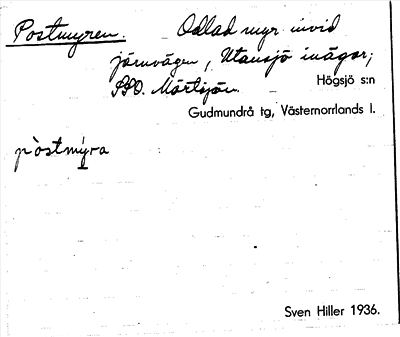 Postmyren. Odlad myr invid
järnvägen, Utansjö inägor;
SSO. Mörtsjön. Högsjö s:n
Gudmundrå tg, Västernorrlands l.
pòstmýra
Sven Hiller 1936.